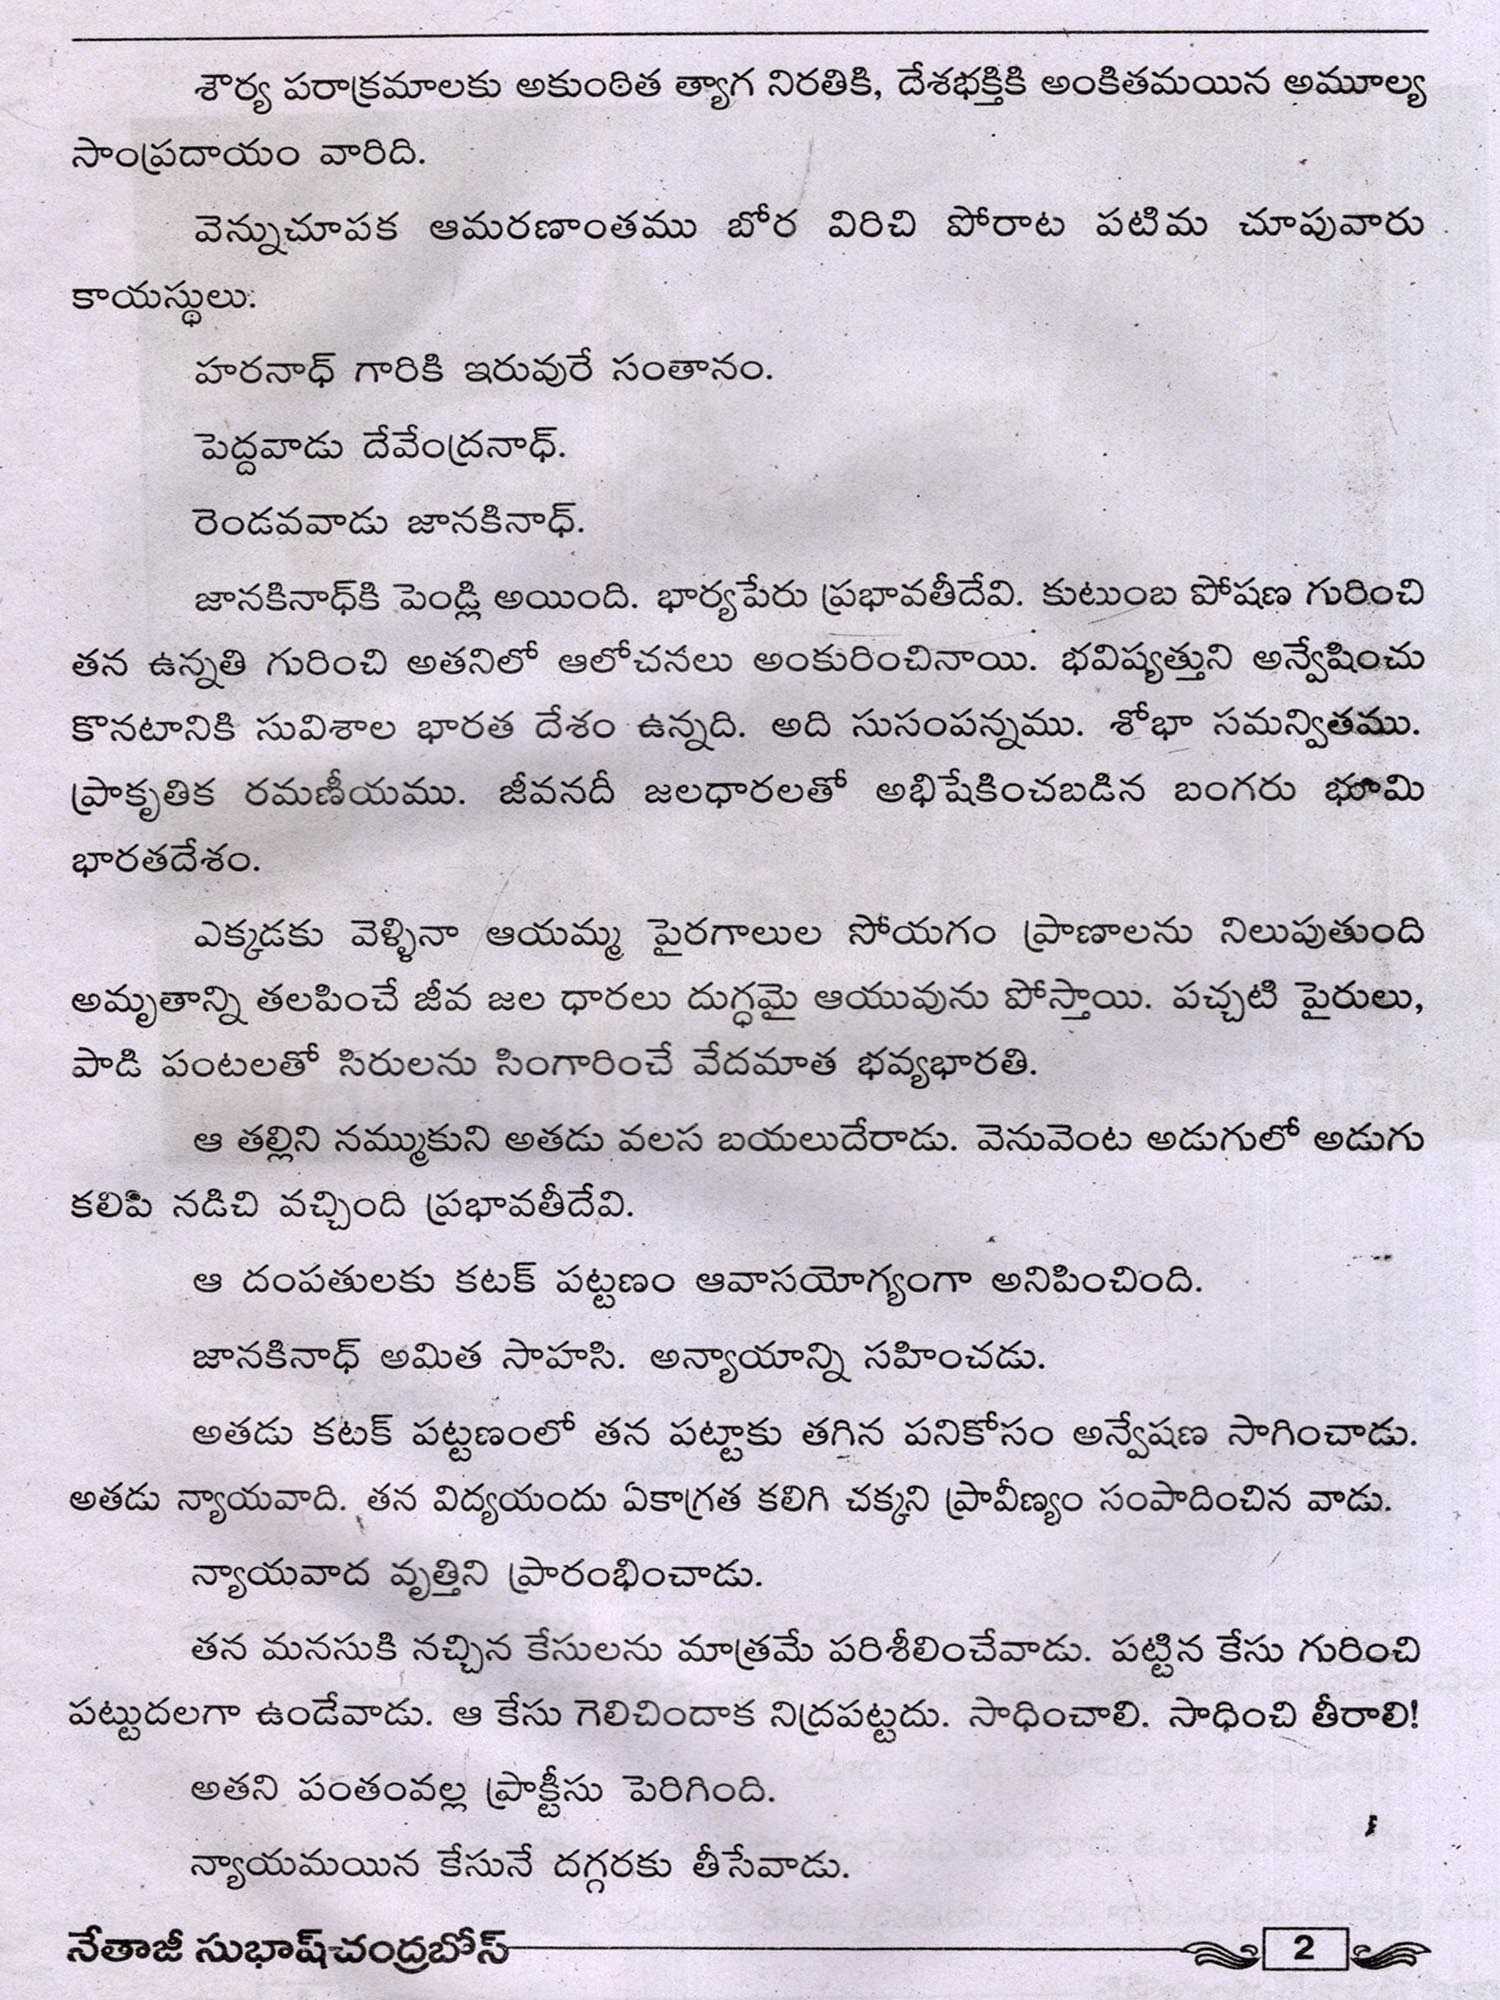 శౌర్య పరాక్రమాలకు అకుంఠిత త్యాగ నిరతికి, దేశభక్తికి అంకితమయిన అమూల్య
సాంప్రదాయం వారిది.
వెన్నుచూపక ఆమరణాంతము బోర విరిచి పోరాట పటిమ చూపువారు
కాయస్థులు.
హరనాధ్ గారికి ఇరువురే సంతానం.
పెద్దవాడు దేవేంద్రనాధ్.
రెండవవాడు జానకినాధ్.
జానకినాధ్‌కి పెండ్లి అయింది. భార్యపేరు ప్రభావతీదేవి. కుటుంబ పోషణ గురించి
తన ఉన్నతి గురించి అతనిలో ఆలోచనలు అంకురించినాయి. భవిష్యత్తుని అన్వేషించు
కొనటానికి సువిశాల భారత దేశం ఉన్నది. అది సుసంపన్నము. శోభా సమన్వితము.
ప్రాకృతిక రమణీయము. జీవనదీ జలధారలతో అభిషేకించబడిన బంగరు భూమి
భారతదేశం.
ఎక్కడకు వెళ్ళినా ఆయమ్మ పైరగాలుల సోయగం ప్రాణాలను నిలుపుతుంది
అమృతాన్ని తలపించే జీవ జల ధారలు దుగ్ధమై ఆయువును పోస్తాయి. పచ్చటి పైరులు,
పాడి పంటలతో సిరులను సింగారించే వేదమాత భవ్యభారతి.
ఆ తల్లిని నమ్ముకుని అతడు వలస బయలుదేరాడు. వెనువెంట అడుగులో అడుగు
కలిపి నడిచి వచ్చింది ప్రభావతీదేవి.
ఆ దంపతులకు కటక్ పట్టణం ఆవాసయోగ్యంగా అనిపించింది.
జానకినాధ్ అమిత సాహసి. అన్యాయాన్ని సహించడు.
అతడు కటక్ పట్టణంలో తన పట్టాకు తగిన పనికోసం అన్వేషణ సాగించాడు.
అతడు న్యాయవాది. తన విద్యయందు ఏకాగ్రత కలిగి చక్కని ప్రావీణ్యం సంపాదించిన వాడు.
న్యాయవాద వృత్తిని ప్రారంభించాడు.
తన మనసుకి నచ్చిన కేసులను మాత్రమే పరిశీలించేవాడు. పట్టిన కేసు గురించి
పట్టుదలగా ఉండేవాడు. ఆ కేసు గెలిచిందాక నిద్రపట్టదు. సాధించాలి. సాధించి తీరాలి!
అతని పంతంవల్ల ప్రాక్టీసు పెరిగింది.
న్యాయమయిన కేసునే దగ్గరకు తీసేవాడు.
నేతాజీ సుభాష్‌చంద్రబోస్ 2